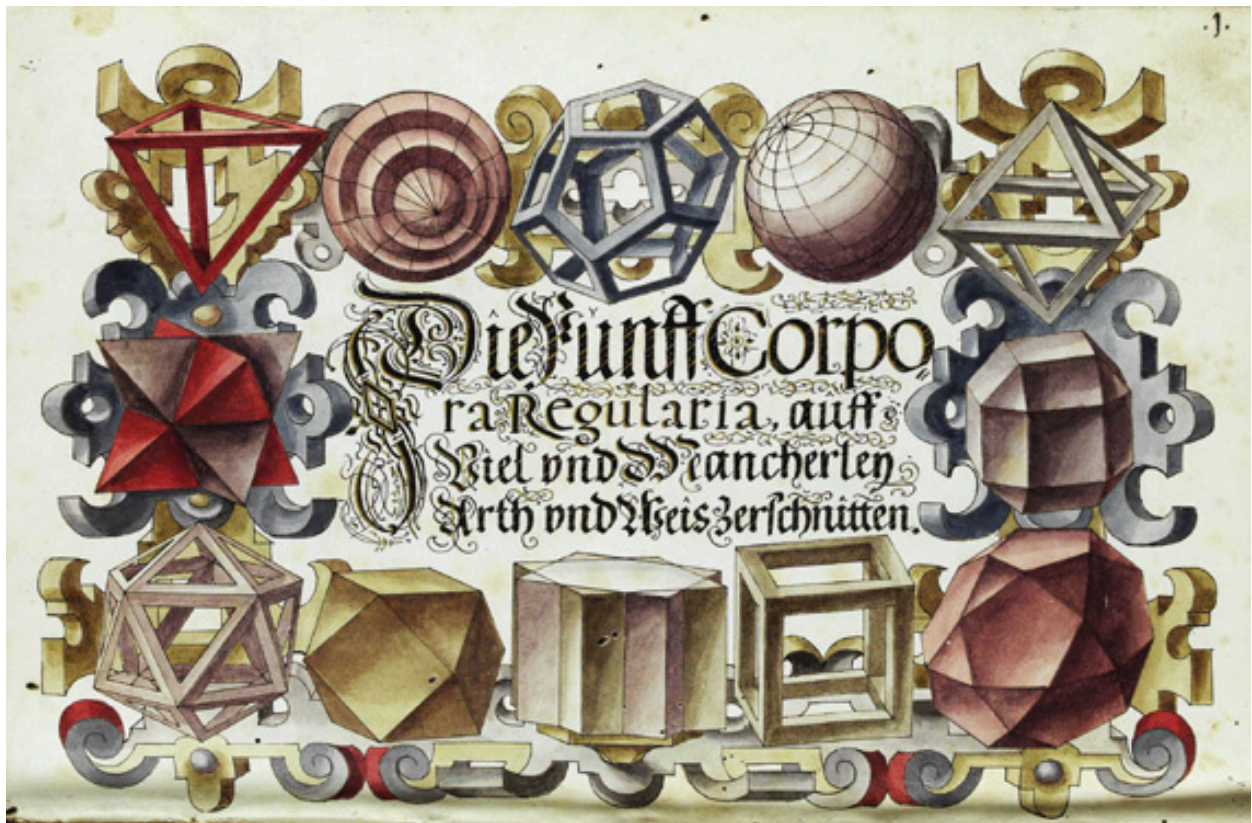 .1.
Die Funff Corpo„
ra Regularia, auff
Viel vnd Mancherley
Arth vnd Weis Zerschnitten.